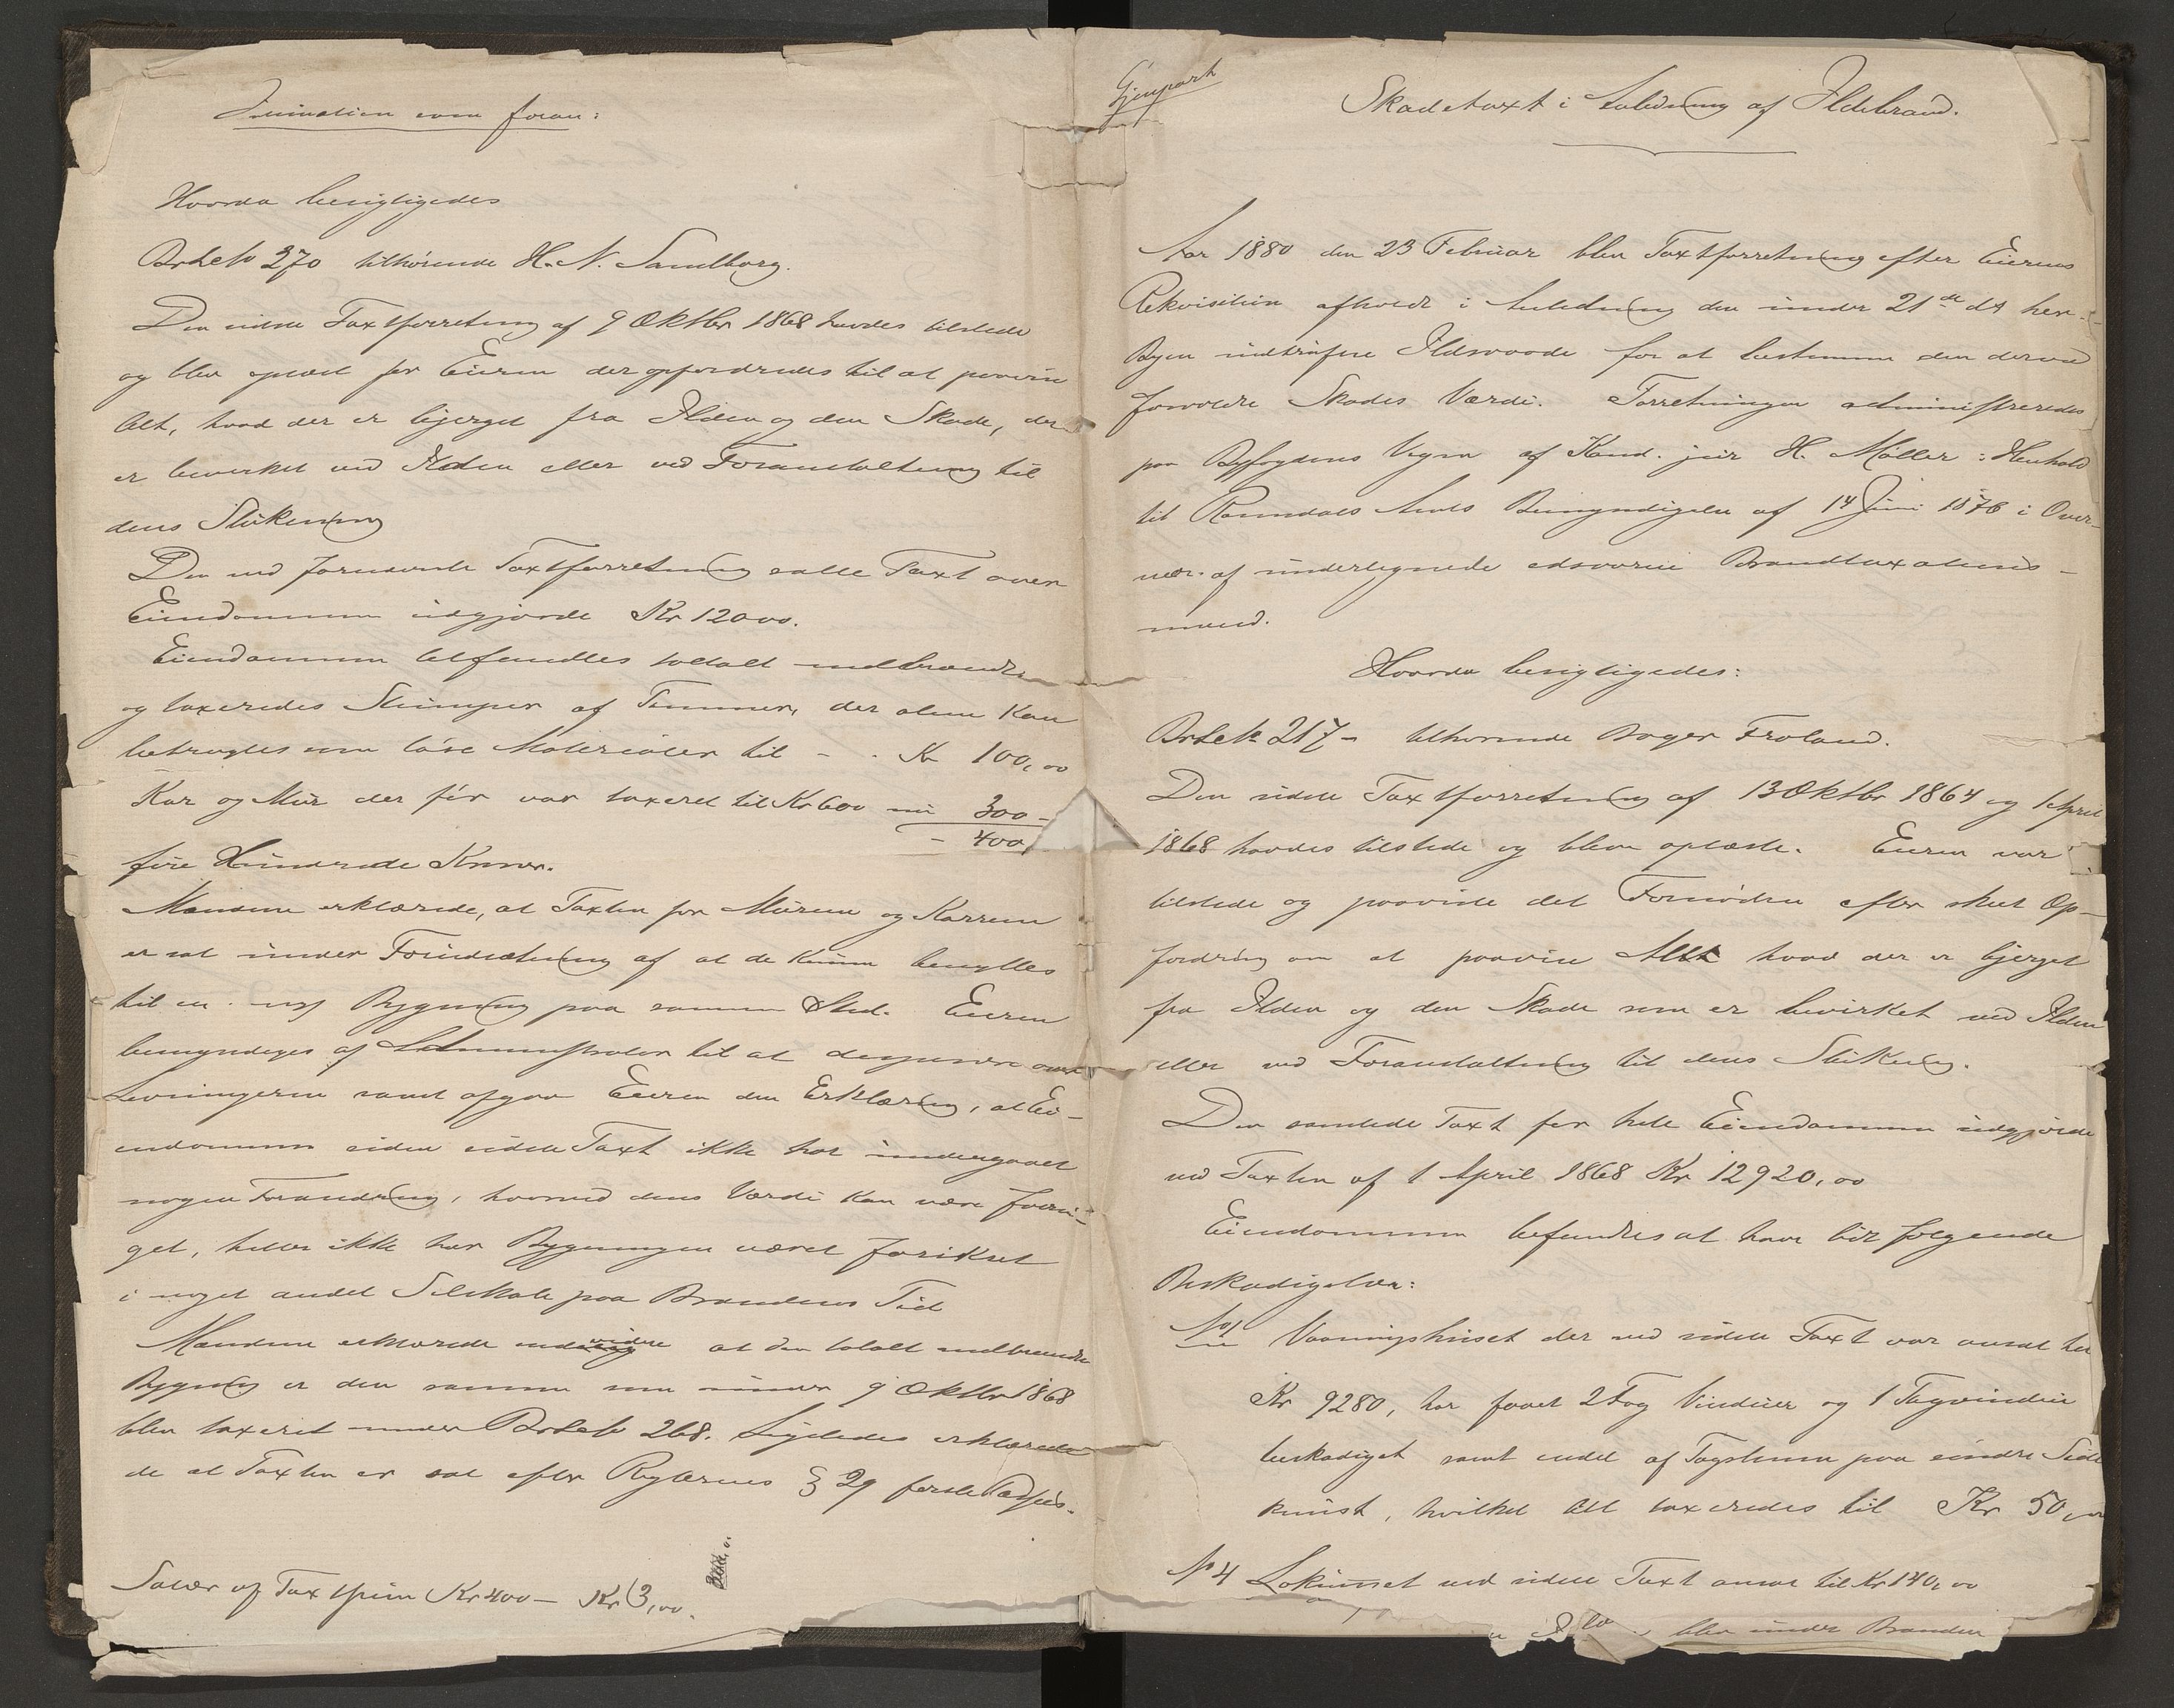 Intimation som foran:
Hvorda besigtigedes
Br tek № 270 tilhørende H. N. Sandborg.
Den sidste Taxtforretning af 9 Oktbr 1868 havdes tilstede
og blev oplæst for Eieren der opfordredes til at paavise
Alt, hvad der er bjerget fra Ilden og den Skade, der
er bevirket ved Ilden eller ved Foranstaltning til
dens Slukning
Den ved forenævnte Taxtforretning satte Taxt over
Eiendommen udgjorde Kr 12000.
Eiendommen befandtes totalt nedbrændt
og taxeredes Stumper af Tømmer, der alene kan
betragtes som løse Materialer til - . Kr 100,00
Kar og Mur der før var taxeret til Kr 600 nu 300 -
- 400,
fire Hundrede Kroner.
Mændene erklærede, at Taxten for Murene og Karrene
er sat under Forudsætning af at de kunne benyttes
til en ny Bygning paa samme Sted. Eieren
bemyndiges af Administrator til at disponere over
Levningerne samt afgav Eieren den Erklæring, at Ei-
endommen siden sidste Taxt ikke har undergaaet
nogen Forandring, hvorved dens Værdi kan være forrin-
get, heller ikke har Bygningen været forsikret
i noget andet Selskab paa Brandens Tid
Mændene erklærede endvidere at den totalt nedbrændte
Bygning er den samme som under 9 Oktbr 1868
blev taxeret under Br tek № 268. Ligeledes erklærede
de at Taxten er sat efter Reglernes § 29 første Passus.
Salær af Taxtsum Kr 400 - Kr 3,00.
Gjenpart
Skadetaxt i Anledning af Ildebrand.
Aar 1880 den 23 Februar blev Taxtforretning efter Eierens
Rekvisition afholdt i Anledning den under 21de ds her i
Byen indtrufne Ildsvaade for at bestemme den derved
forvoldte Skades Værdi. Forretningen administreredes
paa Byfogdens Vegne af Kand. jur H. Møller i Henhold
til Romsdals Amts Bemyndigelse af 14 Juni 1876 i Over-
vær af undertegnede edsvorne Brandtaxations-
mænd.
Hvorda besigtigedes:
Br tek № 217 - tilhørende Bager Froland.
Den sidste Taxtforretning af 13 Oktbr 1864 og 1 April
1868 havdes tilstede og blev oplæste. Eieren var
tilstede og paaviste det Fornødne efter skeet Op-
fordring om at paavise Alt hvad der er bjerget
fra Ilden og den Skade som er bevirket ved Ilden
eller ved Foranstaltning til dens Slukning.
Den samlede Taxt for hele Eiendommen udgjorde
ved Taxten af 1 April 1868 Kr 12920,00
Eiendommen befandtes at have lidt følgende
Beskadigelser:
№ 1 Vaaningshuset der ved sidste Taxt var ansat til
Kr 9280, har faaet 2 Fag Vinduer og 1 Tagvindu
beskadiget samt endel af Tagstenen paa søndre Side
knust, hvilket Alt taxeredes til Kr 50,00
№ 4 Lokumet ved sidste Taxt ansat til Kr 140,00
blev under Branden